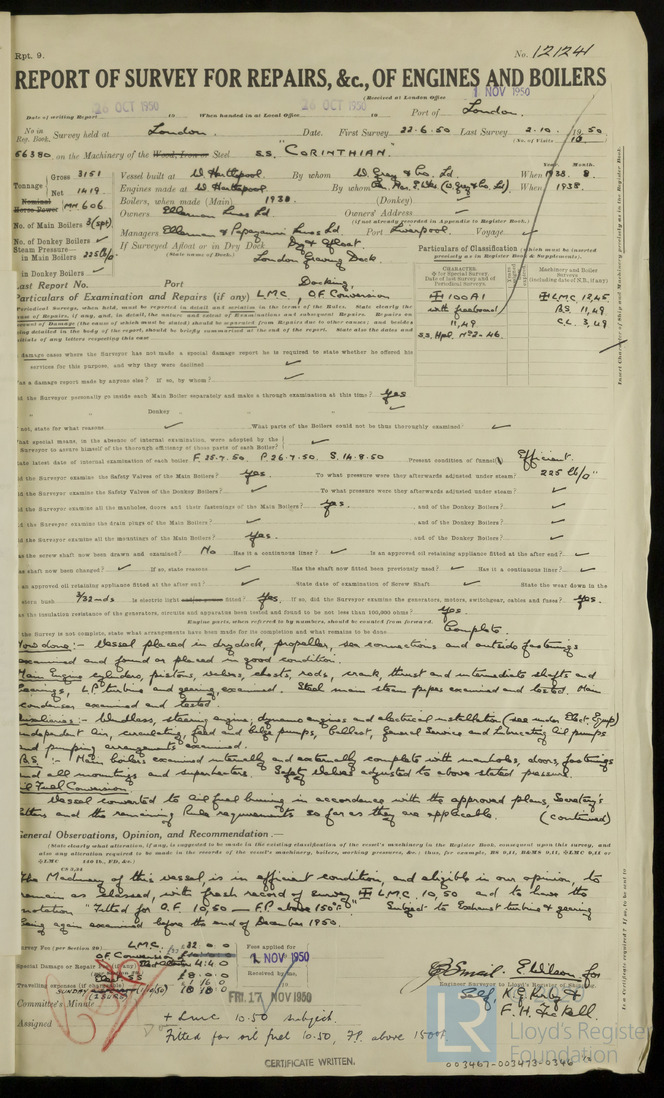 Rpt. 9.
No. 12124
REPORT OF SURVEY FOR REPAIRS, &c., OF ENGINES AND BOILERS
(Received at London Office 1 NOV 1950
Date of writing Report 26 OCT 1950 19 When handed in at Local Office 26 OCT 1950 19 Port of London.
No in Reg. Book. Survey held at London. Date. First Survey 22.6.50 Last Survey 2.10. 1950
(No. of Visits 18)
56380 on the Machinery of the Wood, Iron or Steel S.S. "CORINTHIAN"
Tonnage Gross 3151 Vessel built at W. Hartlepool By whom W. Gray & Co. Ld. When Year. 1938 Month. 8
Net 1419 Engines made at W. Hartlepool By whom When 1938.
Nominal Horse Power MN 606 Boilers, when made (Main) 1938 (Donkey)
No. of Main Boilers 3 (spt) Owners Ellerman Lines Ld Owners' Address
(if not already recorded in Appendix to Register Book.)
No. of Donkey Boilers Managers Ellerman & Papayanni Lines Ld. Port Liverpool. Voyage
Steam Pressure—
in Main Boilers 225 lb/□" If Surveyed Afloat or in Dry Dock Dry & Afloat
(State name of Dock.) London Graving Dock
in Donkey Boilers
Particulars of Classification (which must be inserted precisely as in the Register Book & Supplements).
CHARACTER
Machinery and Boiler Surveys (including date of N.B., if any)
✠ 100A1 ✠ LMC 12,45
with freeboard B.S. 11,49
11,49 C.L. 3,49
S.S. Hpl. No 2-46
Last Report No. Port
Particulars of Examination and Repairs (if any) Docking, L.M.C., O.F. Conversion
services for this purpose, and why they were declined
was a damage report made by anyone else? If so, by whom?
did the Surveyor personally go inside each Main Boiler separately and make a thorough examination at this time? Yes
" " Donkey "
not, state for what reasons What parts of the Boilers could not be thoroughly examined?
what special means, in the absence of internal examination, were adopted by the
Surveyor to assure himself of the thorough efficiency of those parts of each Boiler?
State latest date of internal examination of each boiler F. 25.7.50. P. 26.7.50. S. 14.8.50 Present condition of funnel Efficient
did the Surveyor examine the Safety Valves of the Main Boilers? Yes. To what pressure were they afterwards adjusted under steam? 225 lb/□"
did the Surveyor examine the Safety Valves of the Donkey Boilers? To what pressure were they afterwards adjusted under steam?
did the Surveyor examine all the manholes, doors and their fastenings of the Main Boilers? Yes. , and of the Donkey Boilers?
did the Surveyor examine the drain plugs of the Main Boilers? , and of the Donkey Boilers?
did the Surveyor examine all the mountings of the Main Boilers? Yes. , and of the Donkey Boilers?
has the screw shaft now been drawn and examined? No Has it a continuous liner? Is an approved oil retaining appliance fitted at the after end?
has shaft now been changed? If so, state reasons Has the shaft now fitted been previously used? Has it a continuous liner?
an approved oil retaining appliance fitted at the after end? State date of examination of Screw Shaft State the wear down in the
stern bush 3/32nds Is electric light fitted? Yes. If so, did the Surveyor examine the generators, motors, switchgear, cables and fuses? Yes.
has the insulation resistance of the generators, circuits and apparatus been tested and found to be not less than 100,000 ohms? Yes.
Engine parts, when referred to by numbers, should be counted from forward.
the Survey is not complete, state what arrangements have been made for its completion and what remains to be done Complete.
Now done:- Vessel placed in drydock, propeller, sea connections and outside fastenings
examined and found or placed in good condition.
Main Engine cylinders, pistons, valves, chests, rods, crank, thrust and intermediate shafts and
bearings, L.P. turbine and gearing, examined. Steel main steam pipes examined and tested. Main
condenser examined and tested.
Auxiliaries:- Windlass, steering engine, dynamo engines and electrical installation (see under Elect. Equip)
independent air, circulating, feed and bilge pumps, Ballast, General Service and Lubricating oil pumps
and pumping arrangements examined.
B.S. :- Main boilers examined internally and externally complete with manholes, doors, fastenings
and all mountings and superheaters. Safety Valves adjusted to above stated pressure.
Oil Fuel Conversion
Vessel converted to oil fuel burning in accordance with the approved plans, Secretary's
letters and the remaining Rule requirements so far as they are applicable. (continued)
General Observations, Opinion, and Recommendation.—
(State clearly what alteration, if any, is suggested to be made in the existing classification of the vessel's machinery in the Register Book, consequent upon this survey, and
also any alteration required to be made in the records of the vessel's machinery, boilers, working pressures, &c.; thus, for example, BS 9,11, B&MS 9,11, ✠LMC 9,11 or
The Machinery of this vessel, is in efficient condition, and eligible in our opinion, to
remain as classed, with fresh record of survey ✠ L.M.C. 10,50 and to have the
notation "Fitted for O.F. 10,50 — F.P. above 150°F" Subject to Exhaust turbine & gearing
being again examined before the end of December 1950.
Survey Fee (per Section 29) L.M.C. £32 0 0 Fees applied for
O.F. Conversion 1 NOV 1950
Special Damage or Repair Fee (if any) 4 : 4 : 0
8 : 0 : 0 Received by me,
Travelling expenses (if chargeable)
Committee's Minute FRI. 17 NOV 1950
Engineer Surveyor to Lloyd's Register of Shipping.
E Wilson for
Self, K.G. Kirby &
Assigned + LMC 10.50 subject.
Fitted for oil fuel 10.50, F.P. above 150°F.
CERTIFICATE WRITTEN.
LR Lloyd's Register
Foundation
003467-003473-0346